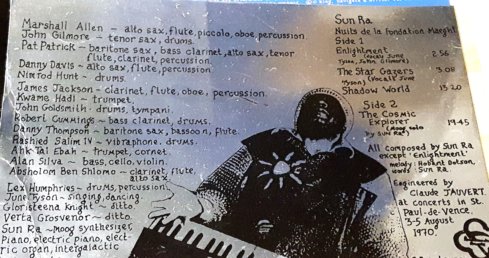 Marshall Allen - alto sax, flute, piccolo, oboe, percussion.
John Gilmore - tenor sax, drums.
Pat Patrick - baritone sax, bass clarinet, alto sax, tenor
flute, clarinet, percussion.
Danny Davis - alto sax, flute, percussion
Nimrod Hunt - drums.
James Jackson - clarinet, flute, oboe, percussion.
Kwame Hadi - trumpet.
John Goldsmith - drums, tympani.
Robert Cummings - bass clarinet, drums.
Danny Thompson - baritone sax, bassoon, flute.
Rashied Salim IV - vibraphone, drums.
Ahk Tal Ebah - trumpet, cornet
Alan Silva - bass, cello, violin.
Absholom Ben Shlomo - clarinet, flute,
alto sax
Lex Humphries - drums, percussion
June Tyson - singing, dancing
Gloristeena Knight - ditto
Verta Grosvenor - ditto
Sun Ra - moog synthesiser,
Piano, electric piano, elect-
ric organ, intergalactic
Sun Ra
Nuits de la Fondation Maeght
Side 1
Enlightment 2.56
(Vocals June
Tyson, John Gilmore)
The Star Gazers 3.08
(Vocals June
Tyson)
Shadow World 13.20
Side 2
The Cosmic
Explorer 19.45
(Moog solo
by Sun Ra)
All composed by Sun Ra
except 'Enlightment'
melody: Hobart Dotson,
words: Sun Ra.
Engineered by
Claude JAUVERT.
at concerts in St.
Paul-de-Vence.
3-5 August
1970.